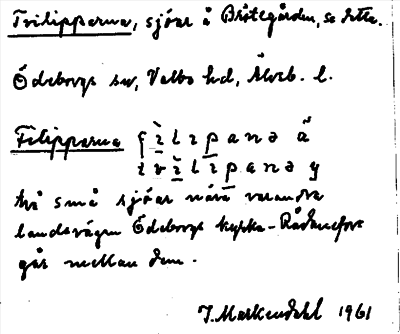 Tvilipparna, sjöar å Bråtegården, se detta.
Ödeborgs sn, Valbo hd, Älvsb. l.
Filipparna
två små sjöar nära varandra
landsvägen Ödeborgs kyrka - Rådanefors
går mellan dem.
J. Markendahl 1961